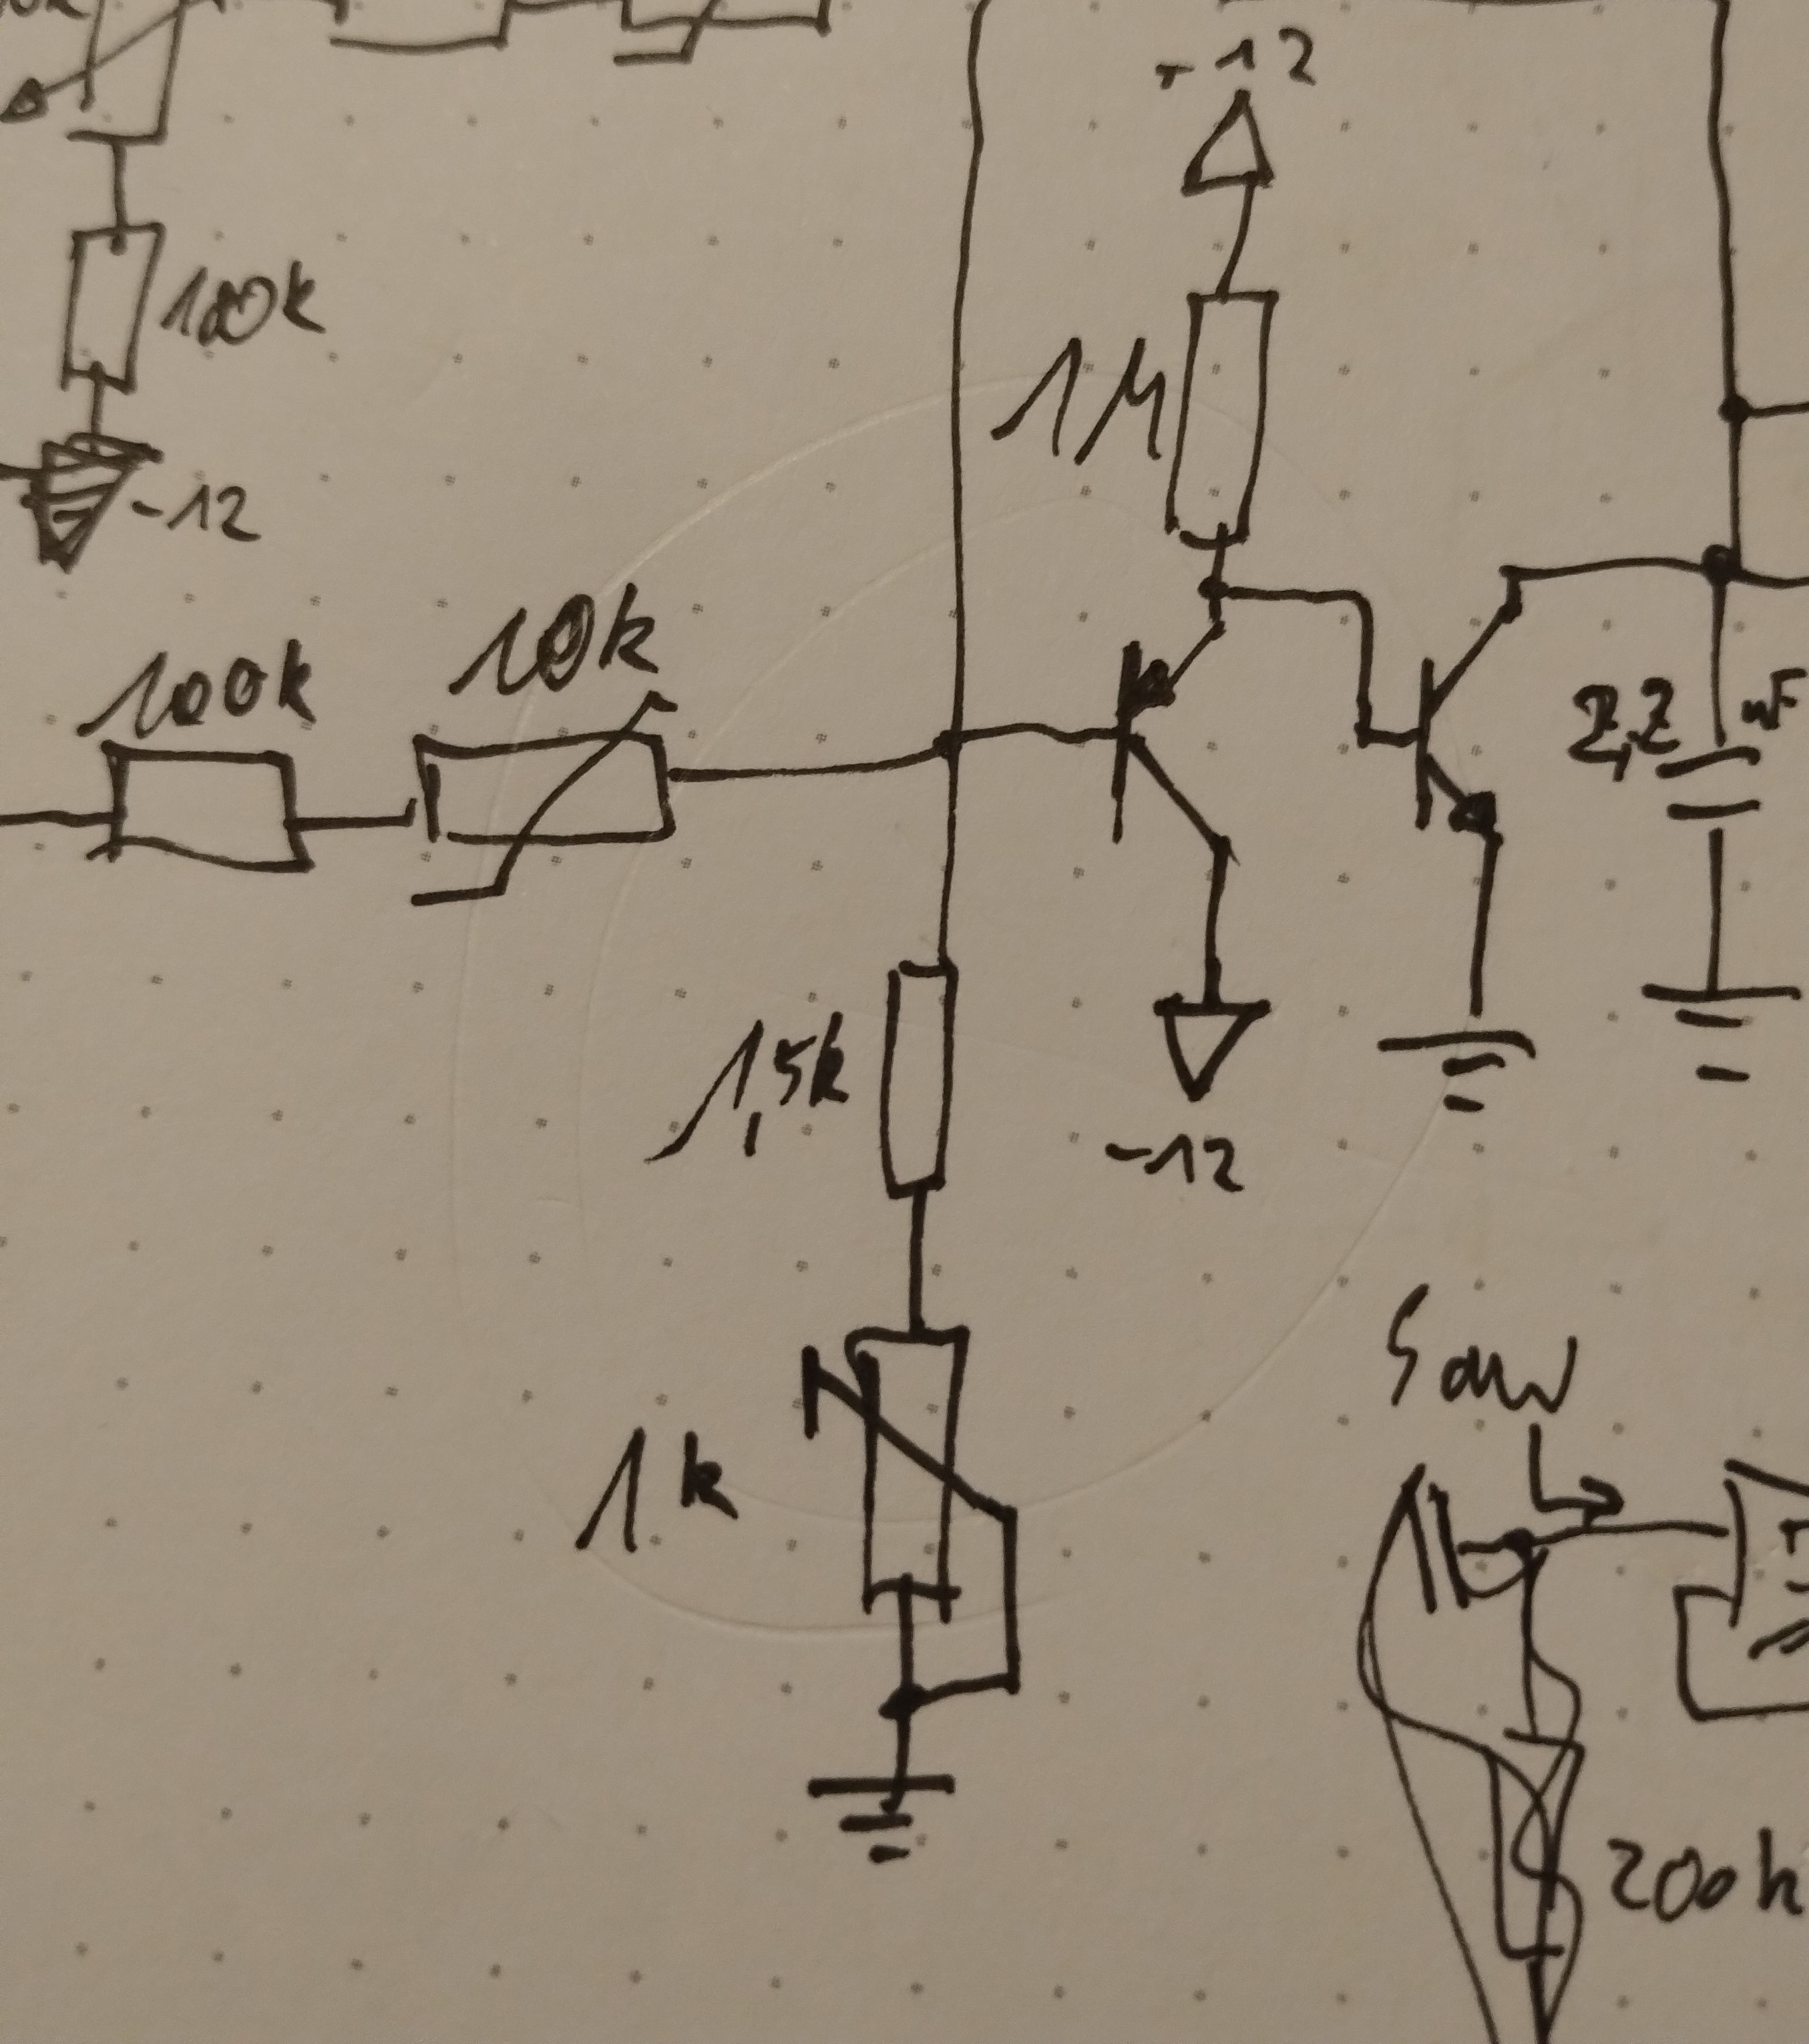 +12
100k
1M
-12
10k
100k
2,2 nF
1,5k
-12
Saw
1k
200k